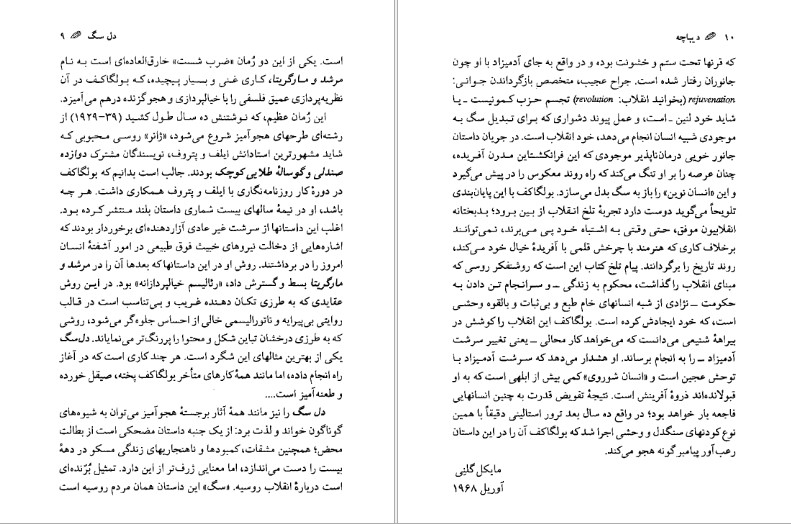 دل سگ ۹
است. یکی از این دو رُمان «ضرب شست» خارق‌العاده‌ای است به نام
مرشد و مارگریتا، کاری غنی و بسیار پیچیده، که بولگاکف در آن
نظریه‌پردازی عمیق فلسفی را با خیالپردازی و هجو گزنده درهم می‌آمیزد.
این رُمان عظیم، که نوشتنش ده سال طول کشید (۳۹–۱۹۲۹) از
رشته‌ای طرحهای هجوآمیز شروع می‌شود، «ژانر» روسی محبوبی که
شاید مشهورترین استادانش ایلف و پتروف، نویسندگان مشترک دوازده
صندلی و گوسالهٔ طلایی کوچک بودند. جالب است بدانیم که بولگاکف
در دورهٔ کار روزنامه‌نگاری با ایلف و پتروف همکاری داشت. هر چه
باشد، او در نیمهٔ سالهای بیست شماری داستان بلند منتشر کرده بود.
اغلب این داستانها از سرشت غیر عادی آزاردهنده‌ای برخوردار بودند که
اشاره‌هایی از دخالت نیروهای خبیث فوق طبیعی در امور آشفتهٔ انسان
امروز را در برداشتند. روش او در این داستانها که بعدها آن را در مرشد و
مارگریتا بسط و گسترش داد، «رئالیسم خیالپردازانه» بود. در این روش
عقایدی که به طرزی تکان دهنده غریب و بی‌تناسب است در قالب
روایتی بی‌پیرایه و ناتورالیسمی خالی از احساس جلوه‌گر می‌شود، روشی
که به طرزی درخشان تباین شکل و محتوا را پررنگ‌تر می‌نمایاند. دل سگ
یکی از بهترین مثالهای این شگرد است. هر چند کاری است که در آغاز
راه انجام داده، اما مانند همهٔ کارهای متأخر بولگاکف پخته، صیقل خورده
و طعنه‌آمیز است....
دل سگ را نیز مانند همهٔ آثار برجستهٔ هجوآمیز می‌توان به شیوه‌های
گوناگون خواند و لذت برد: از یک جنبه داستان مضحکی است از بطالت
محض؛ همچنین مشقات، کمبودها و ناهنجاریهای زندگی مسکو در دههٔ
بیست را دست می‌اندازد، اما معنایی ژرف‌تر از این دارد. تمثیل بُرّنده‌ای
است دربارهٔ انقلاب روسیه. «سگ» این داستان همان مردم روسیه است
۱۰ دیباچه
که قرنها تحت ستم و خشونت بوده و در واقع به جای آدمیزاد با او چون
جانوران رفتار شده است. جراح عجیب، متخصص بازگرداندن جوانی:
rejuvenation (بخوانید انقلاب: revolution) تجسم حزب کمونیست ـ یا
شاید خود لنین ـ است، و عمل پیوند دشواری که برای تبدیل سگ به
موجودی شبیه انسان انجام می‌دهد، خود انقلاب است. در جریان داستان
جانور خویی درمان‌ناپذیر موجودی که این فرانکشتاین مدرن آفریده،
چنان عرصه را بر او تنگ می‌کند که راه روند معکوس را در پیش می‌گیرد
و این «انسان نوین» را باز به سگ بدل می‌سازد. بولگاکف با این پایان‌بندی
تلویحاً می‌گوید دوست دارد تجربهٔ تلخ انقلاب از بین برود؛ بدبختانه
انقلابیون موفق، حتی وقتی به اشتباه خود پی می‌برند، نمی‌توانند
برخلاف کاری که هنرمند با چرخش قلمی با آفریدهٔ خیال خود می‌کند،
روند تاریخ را برگردانند. پیام تلخ کتاب این است که روشنفکر روسی که
مبنای انقلاب را گذاشت، محکوم به زندگی ـ و سرانجام تن دادن به
حکومت ـ نژادی از شبه انسانهای خام طبع و بی‌ثبات و بالقوه وحشی
است، که خود ایجادش کرده است. بولگاکف این انقلاب را کوشش در
بیراههٔ شنیعی می‌دانست که می‌خواهد کار محالی ـ یعنی تغییر سرشت
آدمیزاد ـ را به انجام برساند. او هشدار می‌دهد که سرشت آدمیزاد با
توحش عجین است و «انسان شوروی» کمی بیش از ابلهی است که به او
قبولانده‌اند ذروهٔ آفرینش است. نتیجهٔ تفویض قدرت به چنین انسانهایی
فاجعه بار خواهد بود؛ در واقع ده سال بعد ترور استالینی دقیقاً با همین
نوع کودنهای سنگدل و وحشی اجرا شد که بولگاکف آن را در این داستان
رعب‌آور پیامبرگونه هجو می‌کند.
مایکل گلنی
آوریل ۱۹۶۸